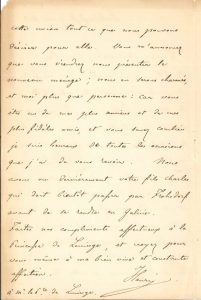 cette union tout ce que nous pouvons
désirer pour elle. Vous m'annoncez
que vous viendrez nous présenter le
nouveau ménage ; nous en serons charmés,
et moi plus que personne : car vous
êtes un de mes plus anciens et de mes
plus fidèles amis, et vous savez combien
je suis heureux de toutes les occasions
que j'ai de vous revoir. Nous
avons vu dernièrement votre fils Charles
qui doit bientôt passer par Frohsdorf
avant de se rendre en Galicie.
Faites nos compliments affectueux à la
Princesse de, et croyez pour
vous même à ma bien vive et constante
affection.
Henri